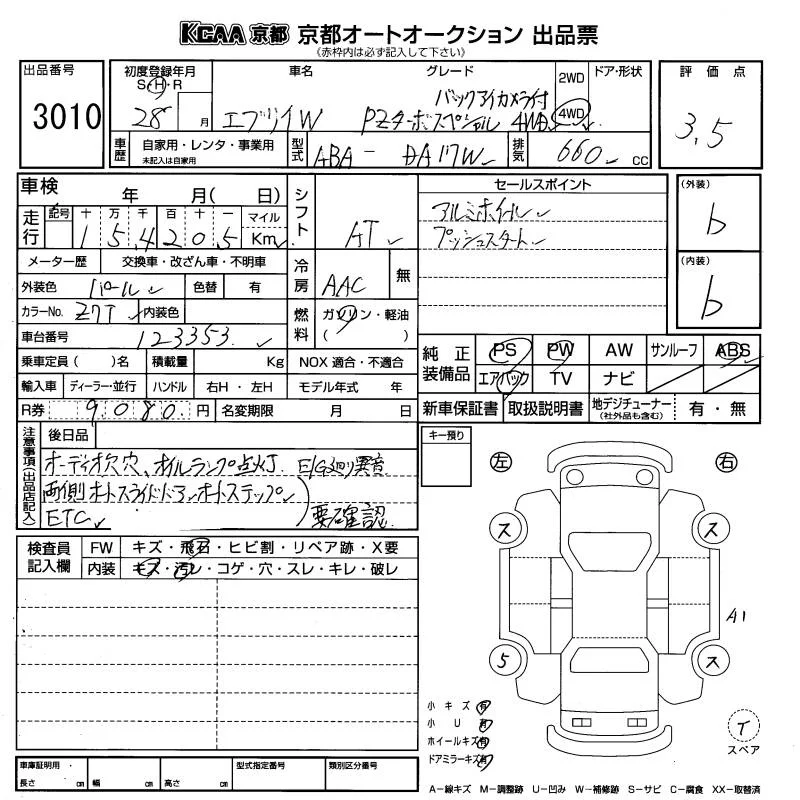 KCAA 京都 京都オートオークション 出品票
(赤枠内は必ず記入して下さい)
出品番号
3010
初度登録年月
S・H・R
28 月
車名
エブリイW
グレード
バックアイカメラ付
PZターボスペシャル 4WD
2WD
4WD
ドア・形状
評価点
3,5
車歴
自家用・レンタ・事業用
未記入は自家用
型式
ABA- DA17W
排気
660 CC
車検 年 月( 日)
走行
記号 十 万 千 百 十 一 マイル
1 5,4 2 0,5 Km
メーター歴 交換車・改ざん車・不明車
外装色 パール 色替 有
カラーNo. Z7T 内装色
車台番号 123353
乗車定員( )名 積載量 Kg NOX 適合・不適合
輸入車 ディーラー・並行 ハンドル 右H・左H モデル年式 年
R券 9080 円 名変期限 月 日
シフト
AT
冷房
AAC 無
燃料
ガソリン・軽油
( )
セールスポイント
アルミホイール
プッシュスタート
(外装)
b
(内装)
b
純正装備品
PS PW AW サンルーフ ABS
エアバック TV ナビ
新車保証書 取扱説明書 地デジチューナー
(社外品も含む)
有・無
注意事項(出品店記入)
後日品
オーディオ欠穴、オイルランプ点灯、E/G廻り異音
両側オートスライドドア、オートステップ
ETC
要確認
キー預り
左 右
検査員記入欄
FW キズ・飛石・ヒビ割・リペア跡・X要
内装 キズ・汚レ・コゲ・穴・スレ・キレ・破レ
ス ス
A1
5 ス
小キズ 有
小U 有
ホイールキズ 有
ドアミラーキズ 有
イ
スペア
車庫証明用
長さ cm 幅 cm 高さ cm
型式指定番号
類別区分番号
A-線キズ M-調整跡 U-凹み W-補修跡 S-サビ C-腐食 XX-取替済